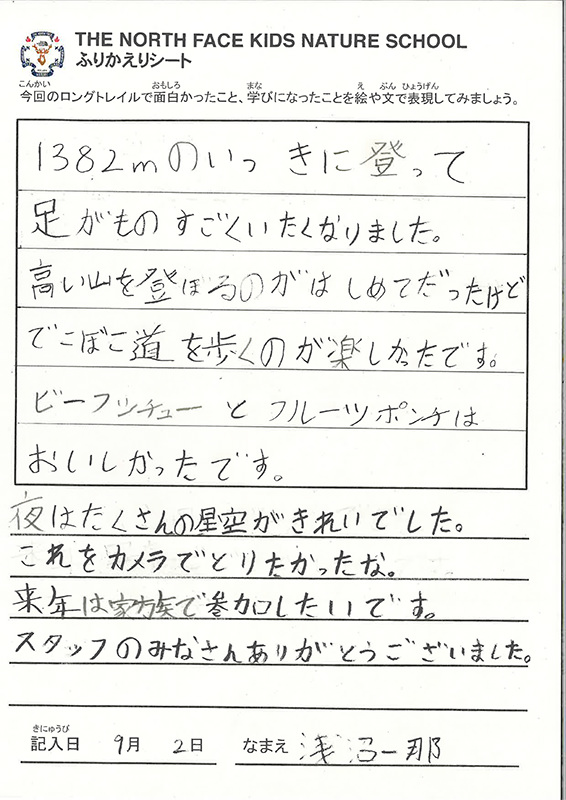 THE NORTH FACE KIDS NATURE SCHOOL
ふりかえりシート
こんかい おもしろ まな え ぶん ひょうげん
今回のロングトレイルで面白かったこと、学びになったことを絵や文で表現してみましょう。
1382mのいっきに登って
足がものすごくいたくなりました。
高い山を登ぼるのがはじめてだったけど
でこぼこ道を歩くのが楽しかったです。
ビーフシチューとフルーツポンチは
おいしかったです。
夜はたくさんの星空がきれいでした。
これをカメラでとりたかったな。
来年は家族で参加したいです。
スタッフのみなさんありがとうございました。
きにゅうび
記入日 9月 2日 なまえ 浅沼一那